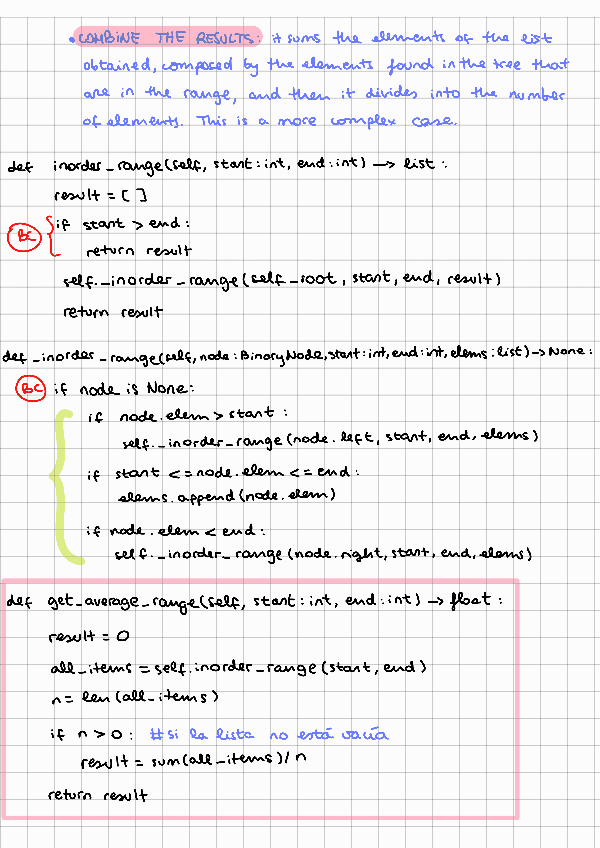 • COMBINE THE RESULTS: it sums the elements of the list
obtained, composed by the elements found in the tree that
are in the range, and then it divides into the number
of elements. This is a more complex case.
def inorder_range(self, start:int, end:int) -> list:
result = []
BC if start > end:
return result
self._inorder_range(self_root, start, end, result)
return result
def _inorder_range(self, node:BinaryNode, start:int, end:int, elems:list) -> None:
BC if node is None:
if node.elem > start:
self._inorder_range(node.left, start, end, elems)
if start <= node.elem <= end:
elems.append(node.elem)
if node.elem < end:
self._inorder_range(node.right, start, end, elems)
def get_average_range(self, start:int, end:int) -> float:
result = 0
all_items = self.inorder_range(start, end)
n = len(all_items)
if n > 0: #si la lista no está vacía
result = sum(all_items) / n
return result